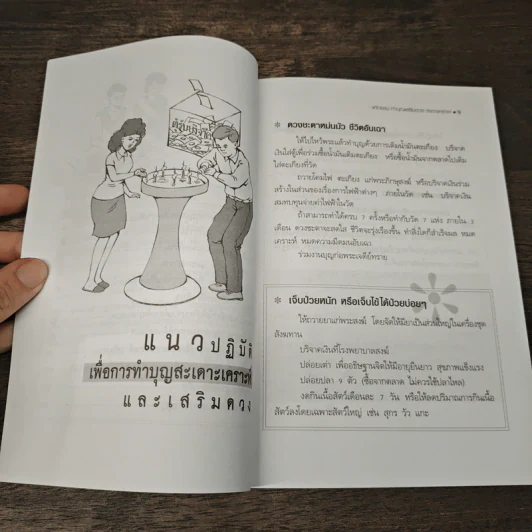 ตู้รับบริจาค
แนวปฏิบัติ
เพื่อการทำบุญสะเดาะเคราะห์
และเสริมดวง
✻ ดวงชะตาหม่นมัว ชีวิตอับเฉา
ให้ไปไหว้พระแล้วทำบุญด้วยการเติมน้ำมันตะเกียง บริจาค
เงินใส่ตู้เพื่อร่วมซื้อน้ำมันเติมตะเกียง หรือซื้อน้ำมันจากตลาดไปเติม
ใส่ตะเกียงที่วัด
ถวายโคมไฟ ตะเกียง แก่พระภิกษุสงฆ์ หรือบริจาคเงินร่วม
สร้างในส่วนของเรื่องการไฟฟ้าต่างๆ ภายในวัด เช่น บริจาคเงิน
สมทบทุนจ่ายค่าไฟฟ้าในวัด
ถ้าสามารถทำได้ครบ 7 ครั้งหรือทำกับวัด 7 แห่ง ภายใน 3
เดือน ดวงชะตาจะสดใส ชีวิตจะรุ่งเรืองขึ้น ทำสิ่งใดก็สำเร็จผล หมด
เคราะห์ หมดความมืดมนอับเฉา
ร่วมงานบุญก่อพระเจดีย์ทราย
✻ เจ็บป่วยหนัก หรือเจ็บไข้ได้ป่วยบ่อยๆ
ให้ถวายยาแก่พระสงฆ์ โดยจัดให้มียาเป็นส่วนใหญ่ในเครื่องชุด
สังฆทาน
บริจาคเงินที่โรงพยาบาลสงฆ์
ปล่อยเต่า เพื่ออธิษฐานจิตให้มีอายุยืนยาว สุขภาพแข็งแรง
ปล่อยปลา 9 ตัว (ซื้อจากตลาด ไม่ควรใช้ปลาไหล)
งดกินเนื้อสัตว์เดือนละ 7 วัน หรือให้ลดปริมาณการกินเนื้อ
สัตว์ลงโดยเฉพาะสัตว์ใหญ่ เช่น สุกร วัว แกะ